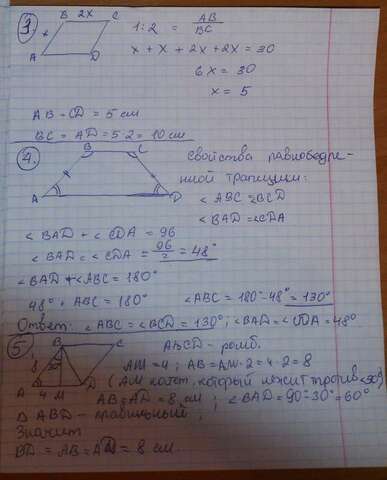 3.
B 2x C
x
A D
1:2 = AB/BC
x + x + 2x + 2x = 30
6x = 30
x = 5
AB = CD = 5 см
BC = AD = 5·2 = 10 см
4.
B C
A D
Свойства равнобедрен-
ной трапеции:
∠ABC = ∠BCD
∠BAD = ∠CDA
∠BAD + ∠CDA = 96
∠BAD = ∠CDA = 96/2 = 48°
∠BAD + ∠ABC = 180°
48° + ABC = 180° ∠ABC = 180° - 48° = 130°
Ответ: ∠ABC = ∠BCD = 130°; ∠BAD = ∠CDA = 48°
5.
B C
8 30°
A 4 M D
ABCD - ромб.
AM = 4; AB = AM·2 = 4·2 = 8
(AM катет, который лежит против ∠30°)
AB = AD = 8 см; ∠BAD = 90° - 30° = 60°
Δ ABD - правильный;
Значит
BD = AB = AD = 8 см